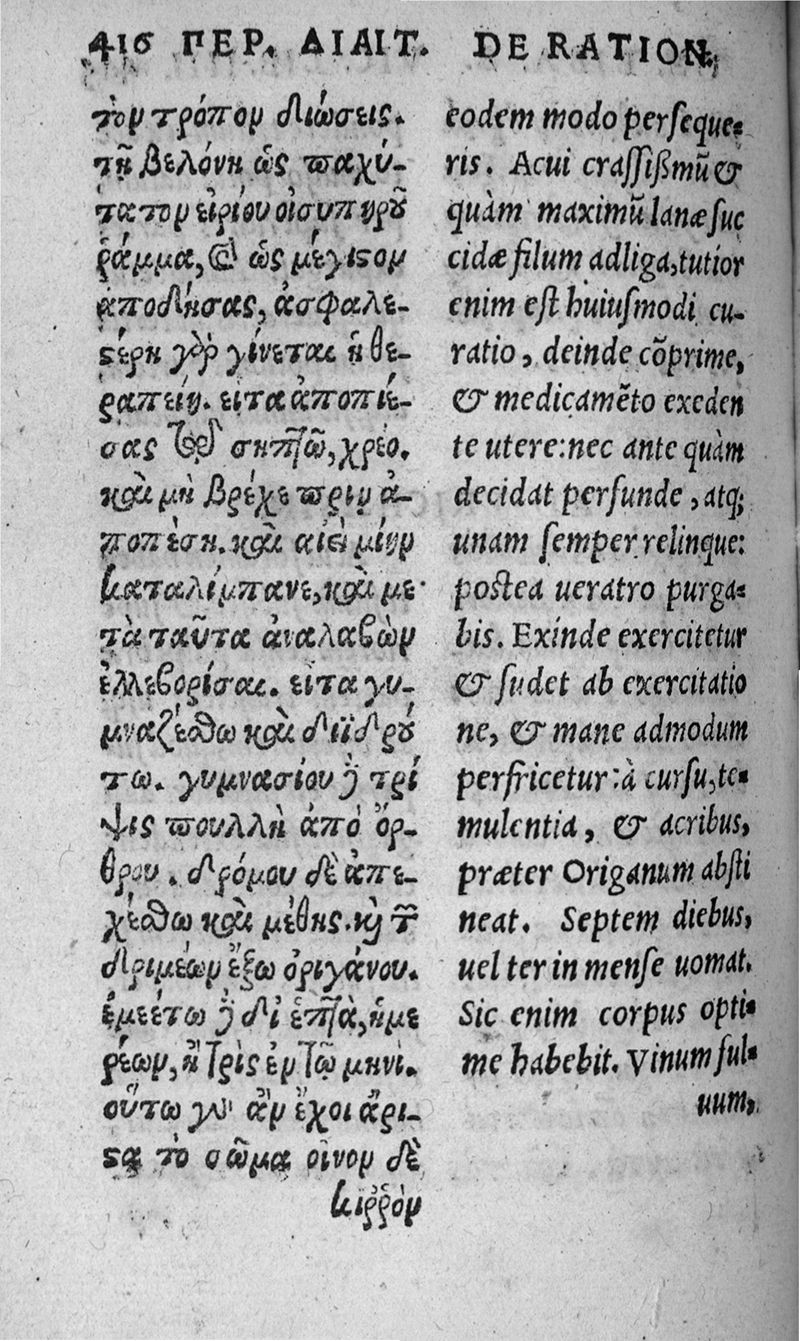 416 ΠΕΡ. ΔΙΑΙΤ. DE RATION.
τὸν τρόπον διώσεις.
τῇ βελόνῃ ὡς παχύ-
τατον εἰρίου οἰσυπηροῦ
ῥάμμα, καὶ ὡς μέγιστον
ἀποδήσας, ἀσφαλε-
στέρη γὰρ γίνεται ἡ θε-
ραπείη. εἶτα ἀποπιέ-
σας τῷ σηπτῷ, χρέο.
καὶ μὴ βρέχε πρὶν ἀ-
ποπέσῃ. καὶ αἰεὶ μίην
καταλίμπανε, καὶ με-
τὰ ταῦτα ἀναλαβὼν
ἑλλεβορίσαι. εἶτα γυ-
μναζέσθω καὶ ἀϊδρού
τω. γυμνασίου δὲ τρί
ψις πουλλὴ ἀπὸ ὄρ-
θρου. δρόμου δὲ ἀπε-
χέσθω καὶ μέθης. καὶ τῶν
δριμέων ἔξω ὀριγάνου.
ἐμεέτω δὲ δι' ἑπτὰ, ἡμε
ρέων, ἢ τρὶς ἐν τῷ μηνὶ.
οὕτω γὰρ ἂν ἔχοι ἄρι-
στα τὸ σῶμα οἶνον δὲ
κιῤῥὸν
eodem modo perſeque-
ris. Acui craſſiſsimũ &
quàm maximũ lanæ ſuc
cidæ filum adliga, tutior
enim eſt huiuſmodi cu-
ratio, deinde cõprime,
& medicamẽto exeden
te utere: nec ante quàm
decidat perfunde, atq;
unam ſemper relinque:
poſtea ueratro purga-
bis. Exinde exercitetur
& ſudet ab exercitatio
ne, & mane admodum
perfricetur: à curſu, te-
mulentia, & acribus,
præter Origanum abſti
neat. Septem diebus,
uel ter in menſe uomat.
Sic enim corpus opti-
me habebit. Vinum ful-
uum,